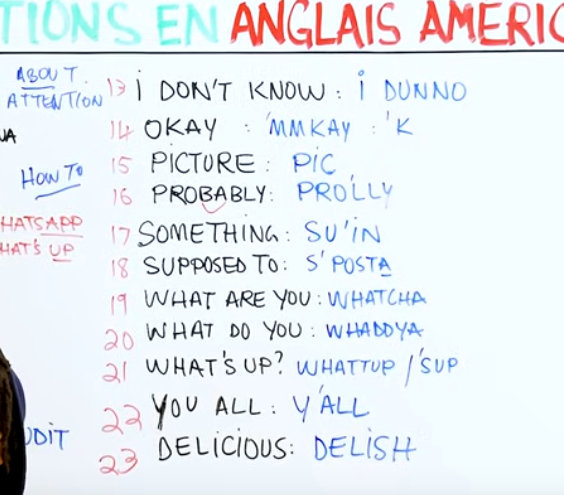 TIONS EN ANGLAIS AMERIC
ABOUT.
ATTENTION
HOW TO
HATSAPP
HAT'S UP
13 I DON'T KNOW : I DUNNO
14 OKAY : 'MMKAY : 'K
15 PICTURE : PIC
16 PROBABLY: PRO'LLY
17 SOMETHING: SU'IN
18 SUPPOSED TO: S'POSTA
19 WHAT ARE YOU: WHATCHA
20 WHAT DO YOU: WHADDYA
21 WHAT'S UP? WHATTUP / 'SUP
22 YOU ALL: Y'ALL
23 DELICIOUS: DELISH